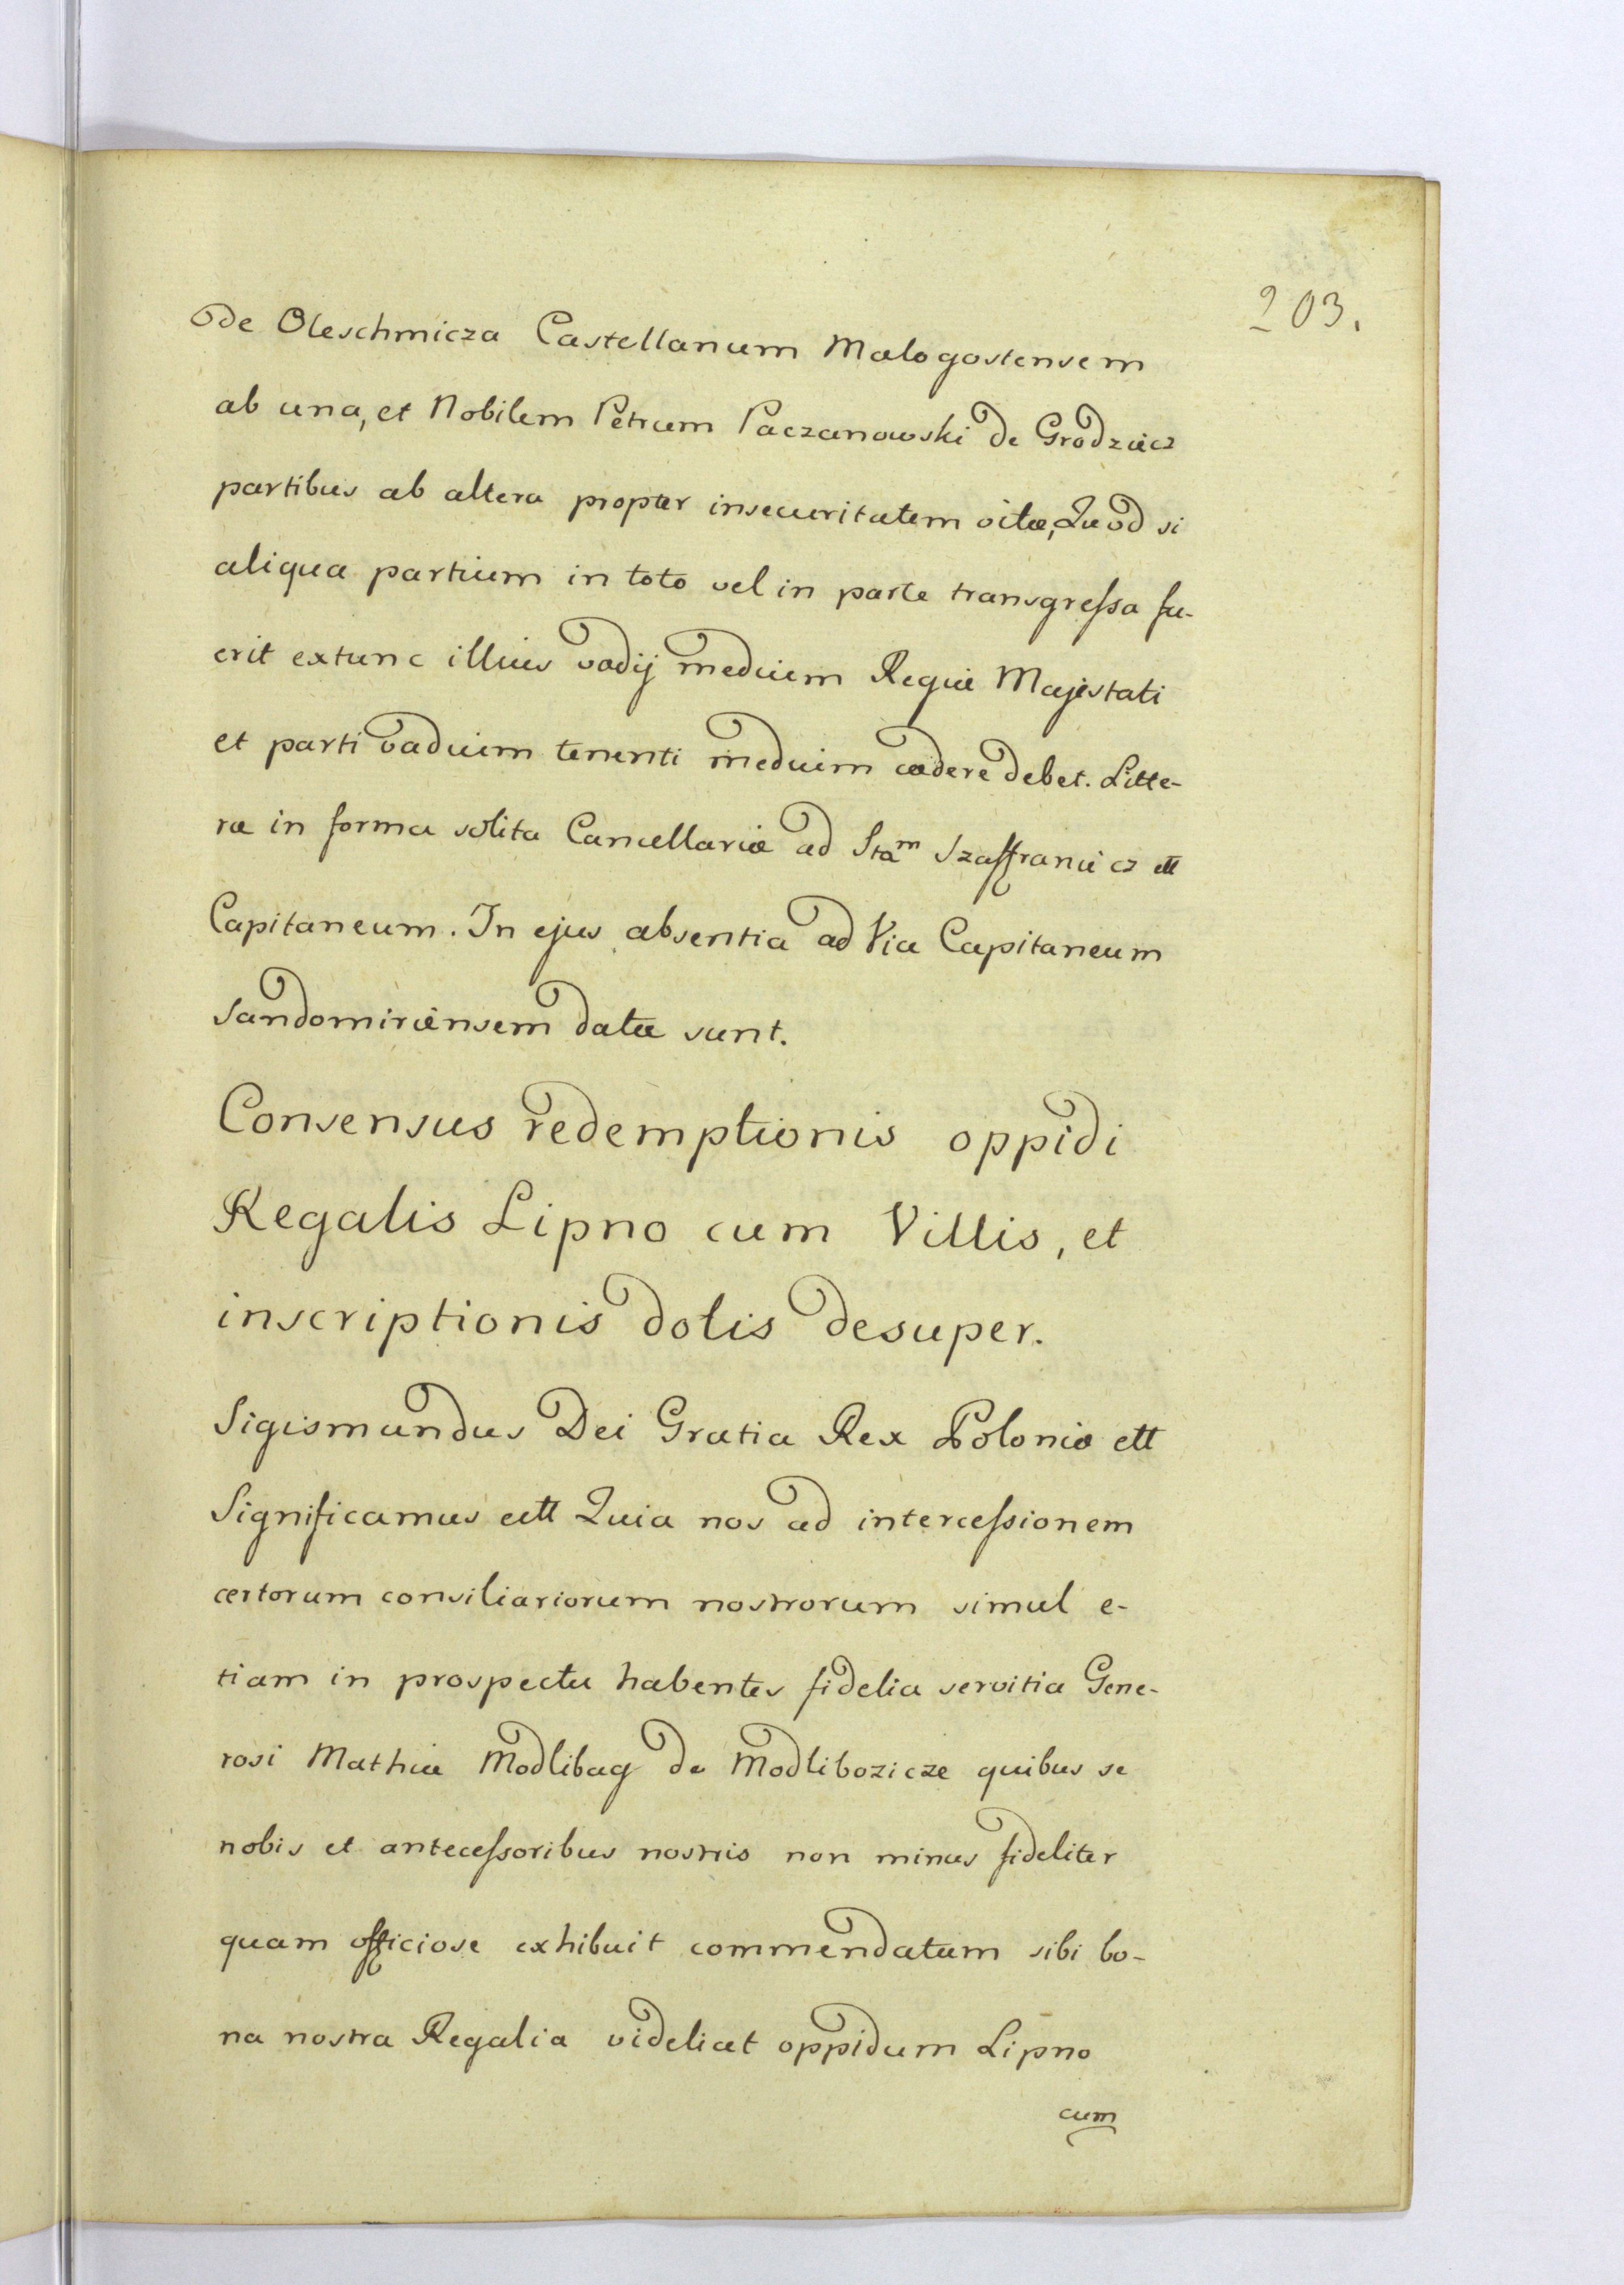 203.
de Oleschnicza Castellanum Malogostensem
ab una, et Nobilem Petrum Paczanowski de Grodziecz
partibus ab altera propter insecuritatem vitæ, Quod si
aliqua partium in toto vel in parte transgressa fu-
erit extunc illius vadij medium Regiæ Majestati
et parti vadium tenenti medium cædere debet. Litte-
ræ in forma solita Cancellariæ ad Sta͞m Szaffraniecz ett
Capitaneum. In ejus absentia ad Via Capitaneum
Sandomiriensem datæ sunt.
Consensus redemptionis oppidi
Regalis Lipno cum Villis, et
inscriptionis dotis desuper.
Sigismundus Dei Gratia Rex Poloniæ ett
Significamus ett Quia nos ad intercessionem
certorum consiliariorum nostrorum simul e-
tiam in prospectu habentes fidelia servitia Gene-
rosi Mathiæ Modlibag de Modlibozicze quibus se
nobis et antecessoribus nostris non minus fideliter
quam officiose exhibuit commendatum sibi bo-
na nostra Regalia videlicet oppidum Lipno
cum